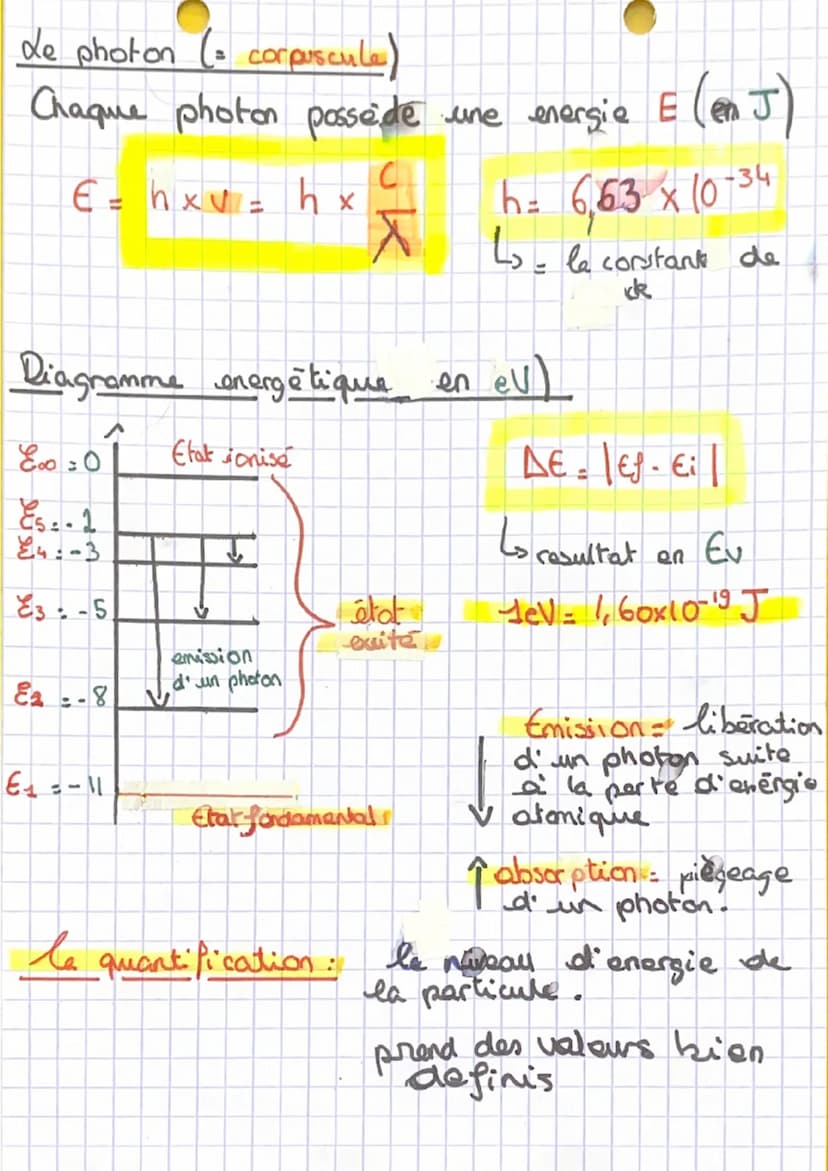 Le photon (= corpuscule)
Chaque photon possède une energie E (en J)
E = h x ν = h x C/λ
h = 6,63 x 10⁻³⁴
↳ = la constante de
de
Diagramme energétique en eV)
E∞ = 0
Etat ionisé
E5 = -1
E4 = -3
E3 = -5
E2 = -8
E1 = -11
emission
d'un photon
état
exité
Etat fondamental
ΔE = |Ef - Ei|
↳ resultat en Ev
1eV = 1,60x10⁻¹⁹ J
Emission = libération
d'un photon suite
à la perte d'énérgie
atomique
↑ absorption = piègeage
d'un photon.
la quantification :
le niveau d'energie de
la particule.
prend des valeurs bien
definis